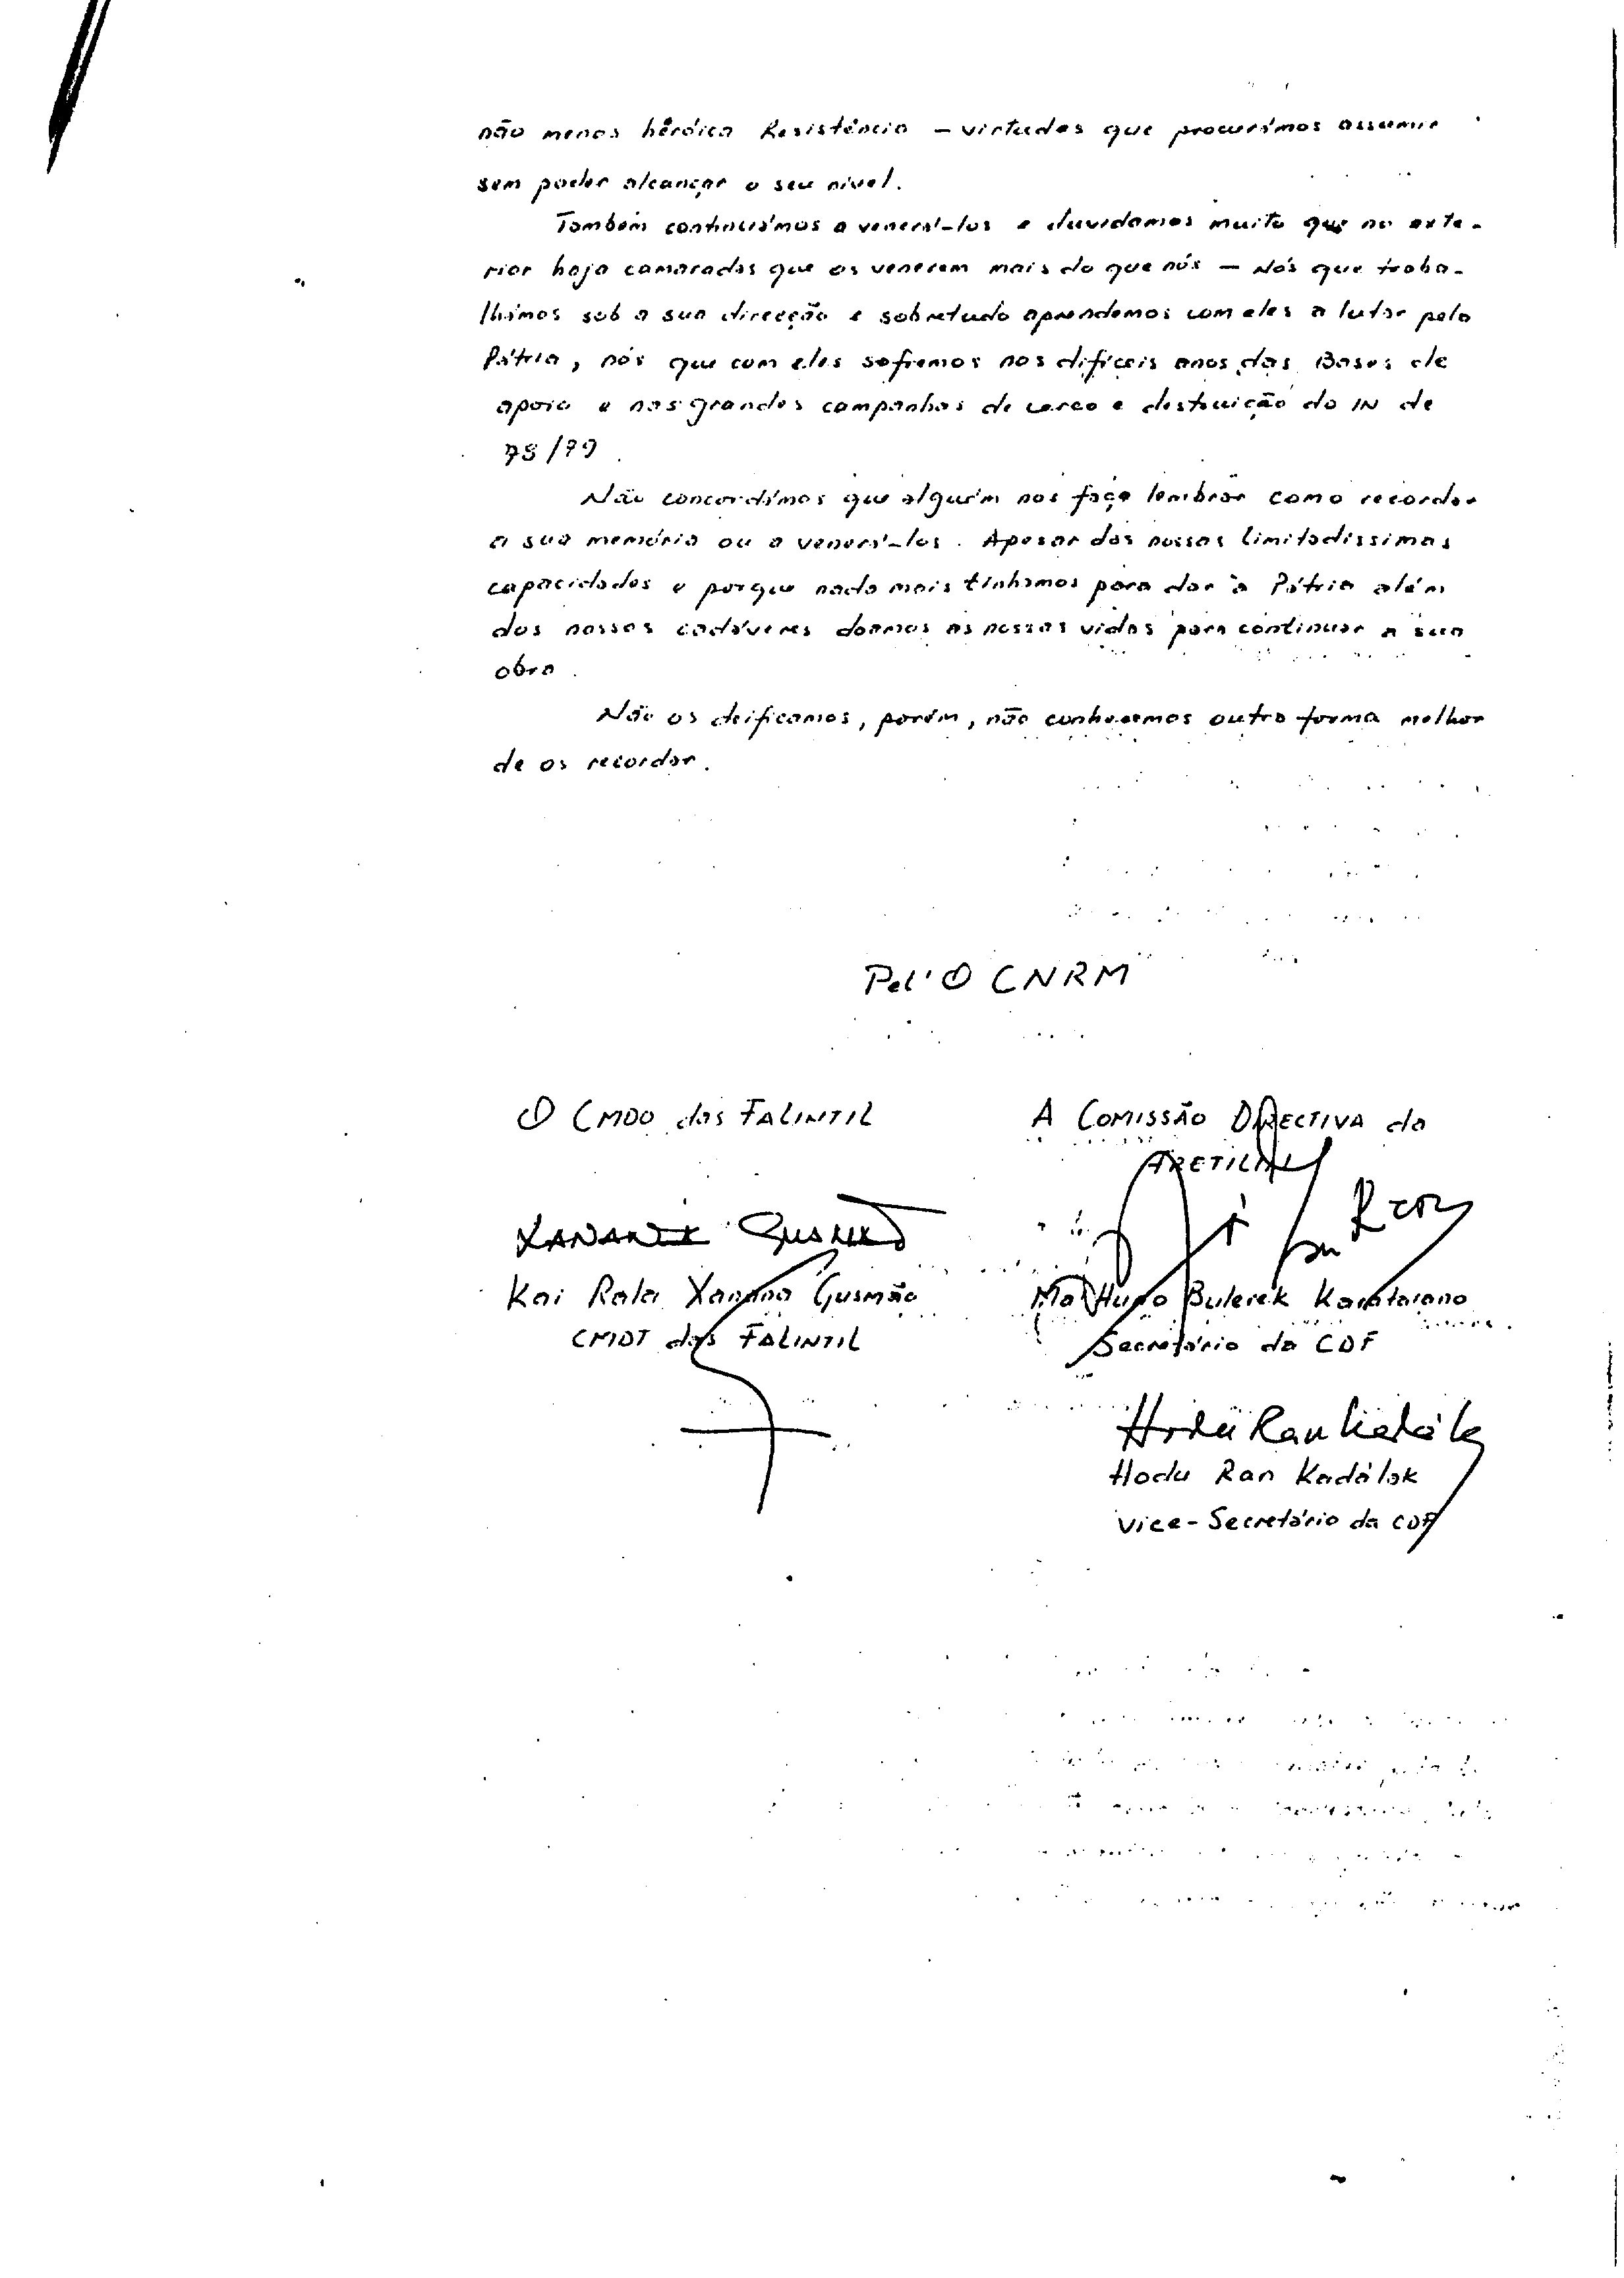 não menos heróica Resistência – virtudes que procurámos assumir
sem poder alcançar o seu nível.
Também continuámos a venerá-los e duvidamos muito que no exte-
rior haja camaradas que os venerem mais do que nós – Nós que traba-
lhámos sob a sua direcção e sobretudo aprendemos com eles a lutar pela
Pátria, nós que com eles sofremos nos difíceis anos das Bases de
apoio e nas grandes campanhas de cerco e destruição do IN de
78/79.
Não concordámos que alguém nos faça lembrar como recordar
a sua memória ou a venerá-los. Apesar das nossas limitadíssimas
capacidades e porque nada mais tínhamos para dar à Pátria além
dos nossos cadáveres doamos as nossas vidas para continuar a sua
obra.
Não os deificamos, porém, não conhecemos outra forma melhor
de os recordar.
Pel'O CNRM
O CMDO das FALINTIL
A COMISSÃO DIRECTIVA da
FRETILIN
XANANA GUSMÃO
Kai Rala Xanana Gusmão
CMDT das FALINTIL
Ma'Huno Bulerek Karataiano
Secretário da CDF
Hodu Ran Kadálak
Hodu Ran Kadálak
Vice-Secretário da CDF